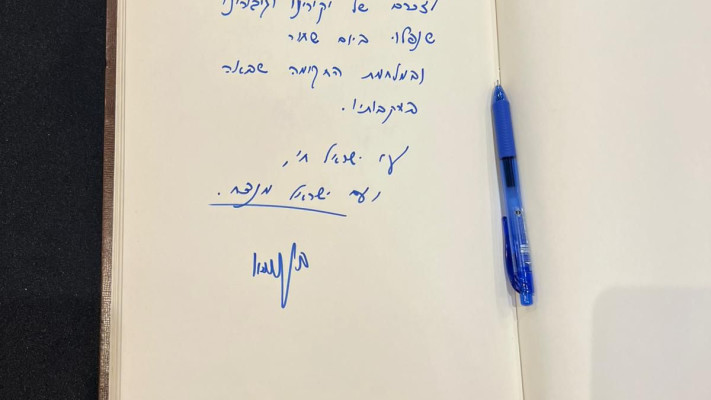 לזכרם של יקירינו וגיבורינו
שנפלו ביום שחור
ובמלחמת התקומה שבאה
בעקבותיו.
עם ישראל חי,
ועם ישראל מנצח.